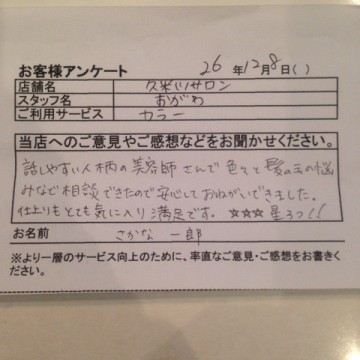 お客様アンケート 26年12月8日( )
店舗名 久米川サロン
スタッフ名 おがわ
ご利用サービス カラー
当店へのご意見やご感想などをお聞かせください。
話しやすい人柄の美容師さんで色々と髪の毛の悩
みなど相談できたので安心しておねがいできました。
仕上りもとても気に入り満足です。☆☆☆星3つ!!
お名前 さかな 一郎
※より一層のサービス向上のために、率直なご意見・ご感想をお書きく
ださい。